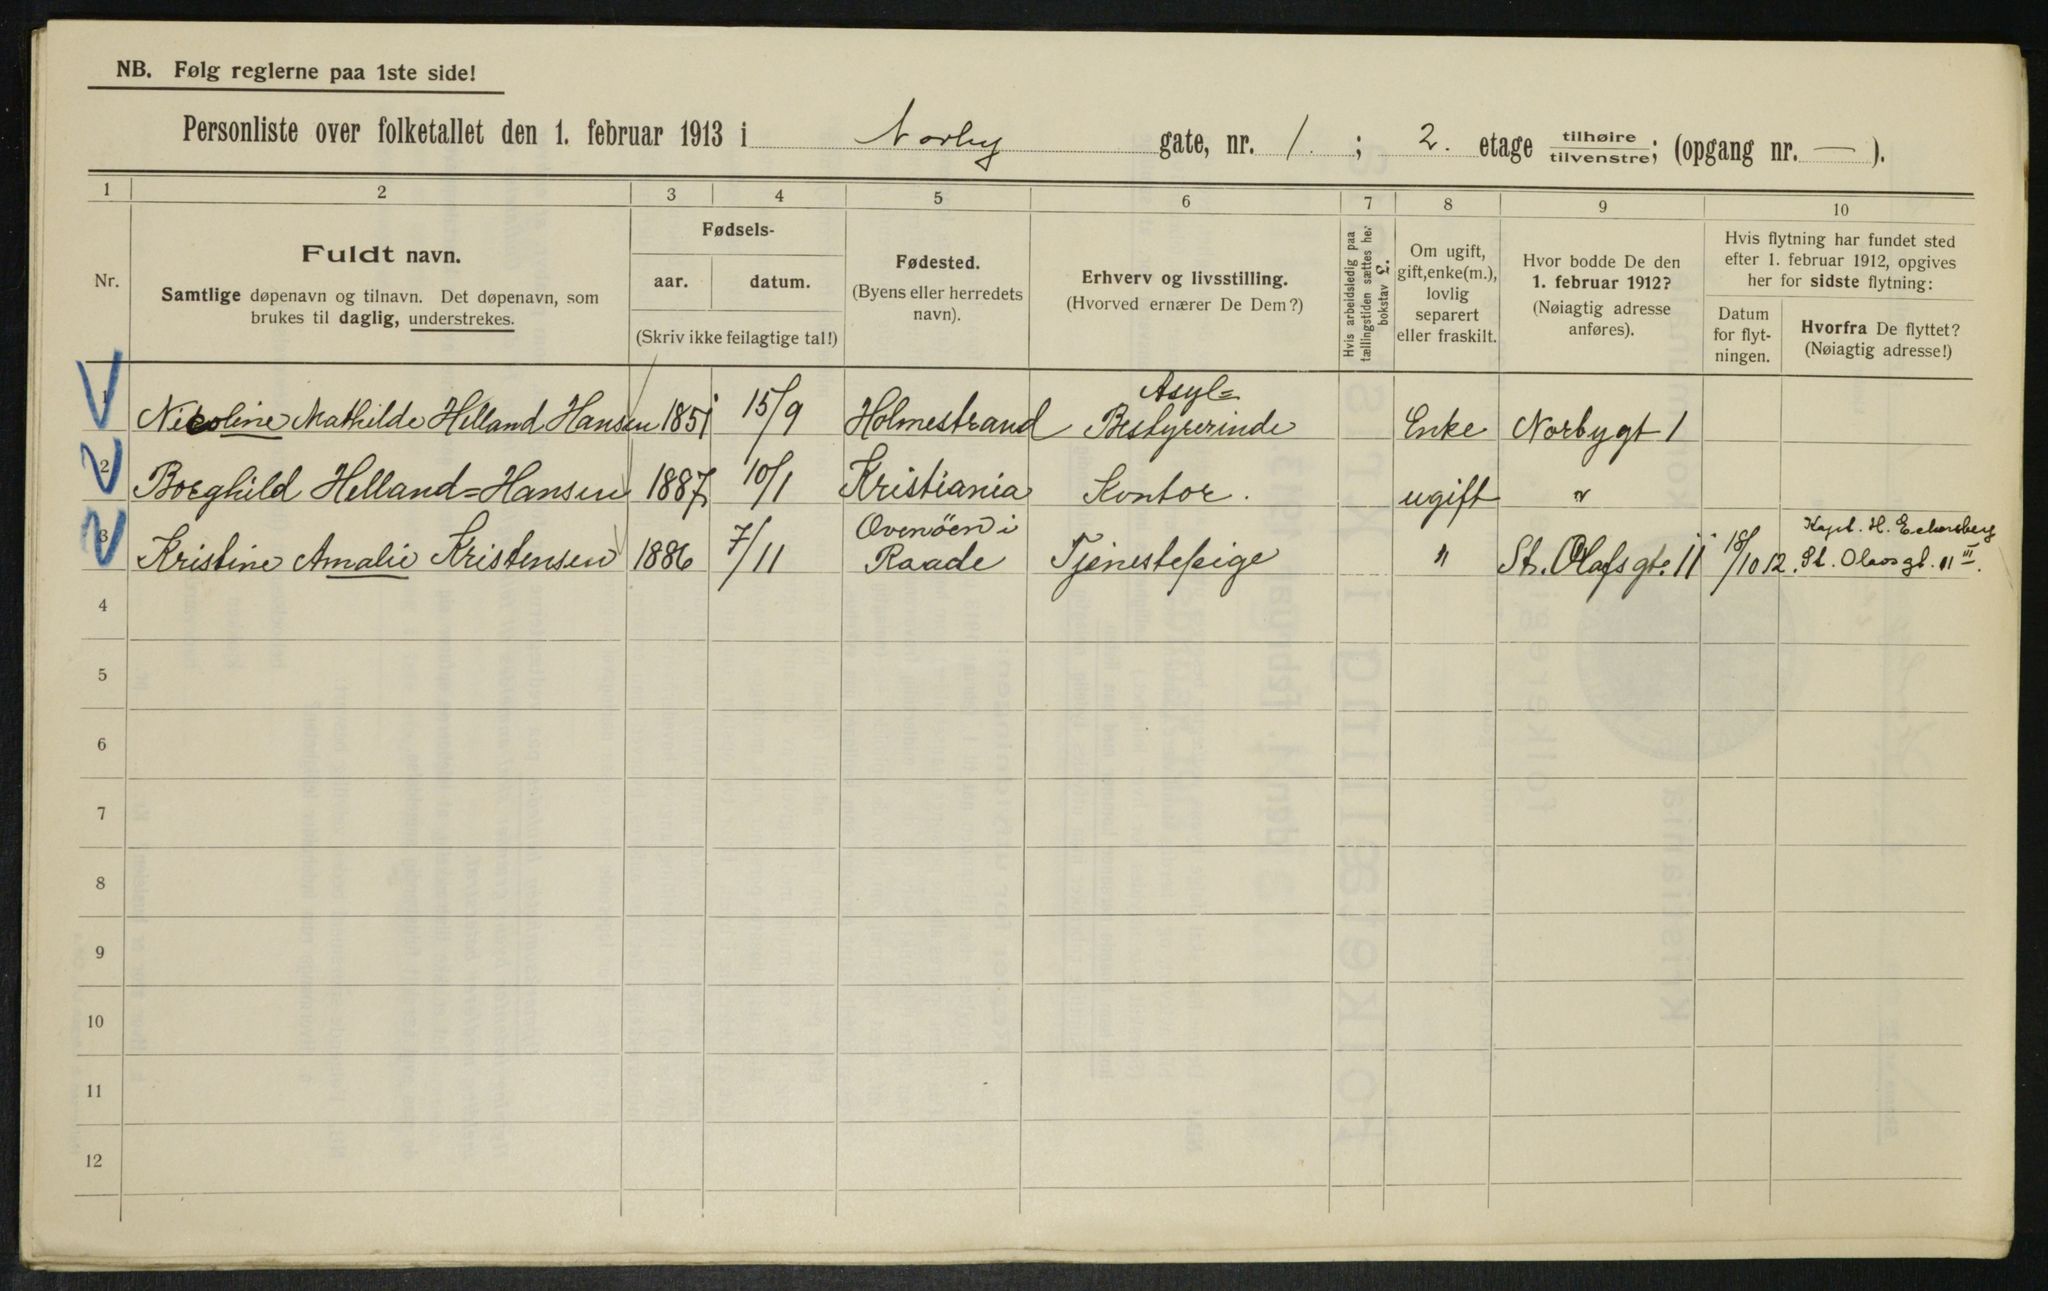 NB. Følg reglerne paa 1ste side!
Personliste over folketallet den 1. februar 1913 i Norby gate, nr. 1. ; 2. etage tilhøire tilvenstre; (opgang nr. — ).
1 2 3 4 5 6 7 8 9 10
Nr.
Fuldt navn.
Samtlige døpenavn og tilnavn. Det døpenavn, som
brukes til daglig, understrekes.
Fødsels-
aar. datum.
(Skriv ikke feilagtige tal!)
Fødested.
(Byens eller herredets
navn).
Erhverv og livsstilling.
(Hvorved ernærer De Dem?)
Hvis arbeidsledig paa
tællingstiden sættes her
bokstav L.
Om ugift,
gift, enke(m.),
lovlig
separert
eller fraskilt.
Hvor bodde De den
1. februar 1912?
(Nøiagtig adresse
anføres).
Hvis flytning har fundet sted
efter 1. februar 1912, opgives
her for sidste flytning:
Datum
for flyt-
ningen.
Hvorfra De flyttet?
(Nøiagtig adresse!)
1 Nicoline Mathilde Helland Hansen 1851 15/9 Holmestrand Asyl= Bestyrerinde Enke Norbygt 1
2 Borghild Helland=Hansen 1887 10/1 Kristiania Kontor. ugift "
3 Kristine Amalie Kristensen 1886 7/11 Ovenöen i Raade Tjenestepige " St. Olafs gt. 11 18/10 12. Kapt. H. Eckersberg
St. Olavs gt. 11 III.
4
5
6
7
8
9
10
11
12